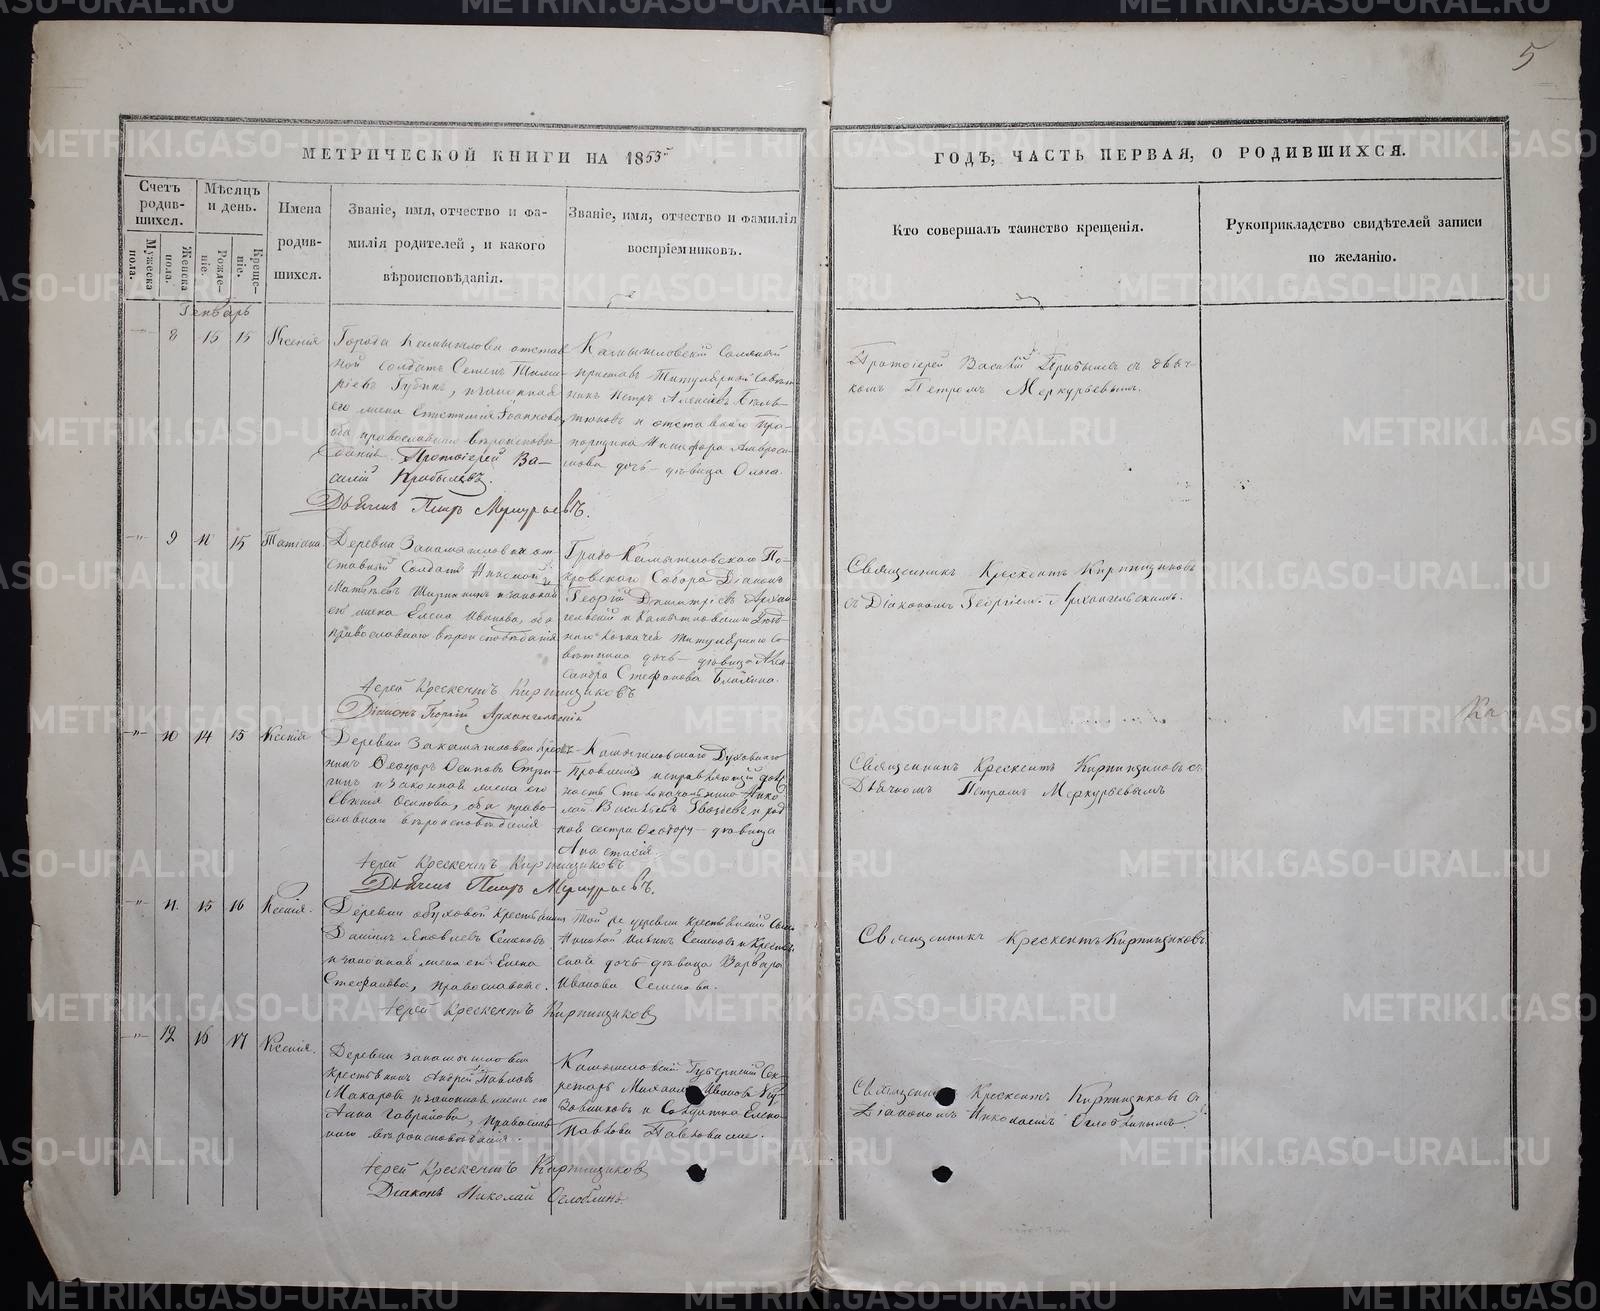 5
МЕТРИЧЕСКОЙ КНИГИ НА 1853
ГОДЪ, ЧАСТЬ ПЕРВАЯ, О РОДИВШИХСЯ.
Счетъ родив- шихся.
Мужеска пола.
Женска пола.
Мѣсяцъ и день.
Рожде- ніе.
Креще- ніе.
Имена родив- шихся.
Званіе, имя, отчество и фа-
милія родителей, и какого
вѣроисповѣданія.
Званіе, имя, отчество и фамилія
воспріемниковъ.
Кто совершалъ таинство крещенія.
Рукоприкладство свидѣтелей записи
по желанію.
Генварь
8 15 15 Ксенія
Города Камышлова отстав
ной солдатъ Семенъ
Губинъ, и законная
его жена Іоаннова,
оба православнаго вѣроисповѣ
данія. Протоіерей Ва-
силій Прибылевъ.
Дьячекъ Петръ Меркурьевъ.
Камышловскій Соляный
приставъ Титулярный Совѣт
никъ Петръ Алексѣевъ
и отставнаго пра-
порщика Никифора Амвроси-
мова дочь дѣвица Ольга.
Протоіерей Василій Прибылевъ съ дьяч-
комъ Петромъ Меркурьевымъ.
9 11 15 Татіана
Деревни Закамышловки от
ставный Солдатъ
Матвѣевъ и законная
его жена Елена Иванова, оба
православнаго вѣроисповѣданія
Іерей Крескентъ Кирпищиковъ
Діаконъ Георгій Архангельскій
Градо-Камышловскаго По-
кровскаго Собора Діаконъ
Георгій Димитріевъ Архан-
гельскій и Камышловскаго Уѣзд-
наго Казначея титулярнаго Со-
вѣтника дочь дѣвица Алек-
сандра Стефанова
Священникъ Крескентъ Кирпищиковъ
съ Діакономъ Георгіемъ Архангельскимъ.
10 14 15 Ксенія
Деревни Закамышловки Крестья-
нинъ Ѳеодоръ Осиповъ
и законная жена его
Евгенія Осипова, оба право-
славнаго вѣроисповѣданія
Іерей Крескентъ Кирпищиковъ
Дьячекъ Петръ Меркурьевъ.
Камышловскаго Духовнаго
Правленія исправляющій долж
ность Столоначальника Нико
лай Васильевъ Гвоздевъ и род
ной сестра Ѳеодору дѣвица
Анастасія
Священникъ Крескентъ Кирпищиковъ съ
Дьячкомъ Петромъ Меркурьевымъ
11 15 16 Ксенія.
Деревни Обуховой Крестьянинъ
Даніилъ Яковлевъ Семеновъ
и законная жена его Елена
Стефанова, православные.
Іерей Крескентъ Кирпищиковъ
Той же деревни крестьянскій Сынъ
Николай Семеновъ и Крестьян
ская дочь дѣвица Варвара
Иванова Семенова.
Священникъ Крескентъ Кирпищиковъ
12 16 17 Ксенія.
Деревни Закамышловки
крестьянинъ Андрей Павловъ
Макаровъ и законная жена его
Анна Гаврилова, православ
наго вѣроисповѣданія.
Іерей Крескентъ Кирпищиковъ
Діаконъ Николай Оглоблинъ
Камышловскій Губернскій Сек-
ретарь Михаилъ Ивановъ
и Солдатка Елена
Павлова
Священникъ Крескентъ Кирпищиковъ съ
Діакономъ Николаемъ Оглоблинымъ.
METRIKI.GASO-URAL.RU